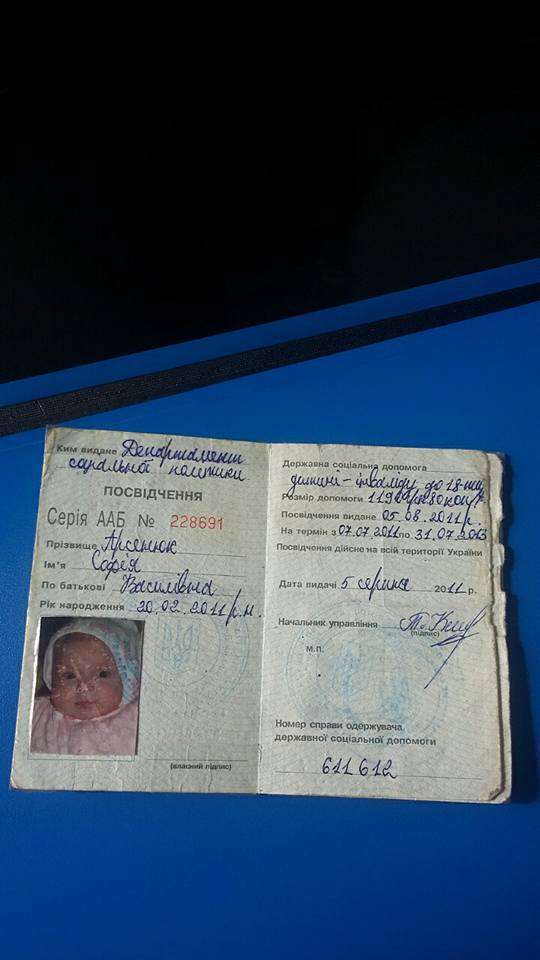 Ким видане Департамент
соціальної політики
ПОСВІДЧЕННЯ
Серія ААБ № 228691
Прізвище Арсенюк
Ім'я Софія
По батькові Василівна
Рік народження 20.02.2011 р.н.
(власний підпис)
Державна соціальна допомога
дитині-інваліду до 18
Розмір допомоги
Посвідчення видане 05.08.2011 р.
На термін з 07.07.2011 по 31.07.2013
Посвідчення дійсне на всій території України
Дата видачі 5 серпня 2011 р.
Начальник управління
(підпис)
м.п.
Номер справи одержувача
державної соціальної допомоги
611612